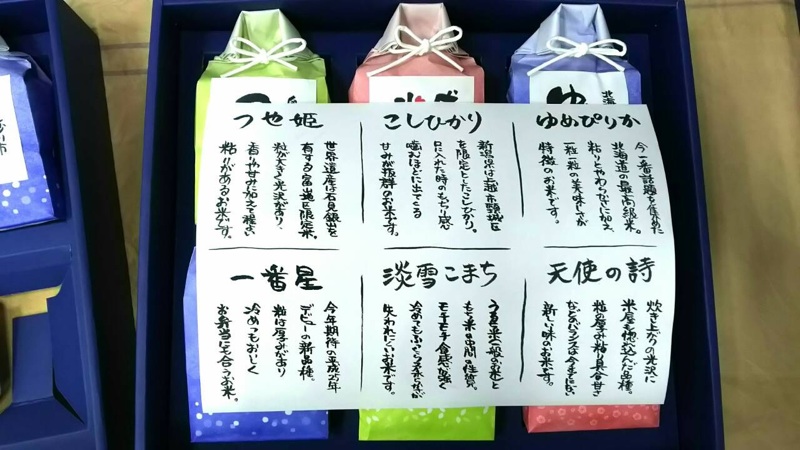 つや姫
世界遺産石見銀山を
有する当地に限定米。
粒が大きく光沢があり
香りや甘さに加えて程よい
粘りがあるお米です。
こしひかり
新潟県は上越市頸城区
を限定としたこしひかり。
口に入れた時のもちり感
噛むほどに出てくる
甘みが抜群のお米です。
ゆめぴりか
今一番話題を集めた
北海道の最高級米。
粘りとやわらかさに加え
一粒一粒の美味しさが
特徴のお米です。
一番星
今年期待の平成25年
デビューの新品種。
粒は厚みがあり
冷めてもおいしく
お弁当にも合うお米。
淡雪こまち
うるち米(一般のお米)と
もち米の中間の性質。
モチモチ食感が強く
冷めてもふっくら柔らかさが
失われにくいお米です。
天使の詩
炊き上がりの光沢に
米屋も惚れ込んだ品種。
粒の厚み・粘り具合・甘さ
などバランスは今までにない
新しい味のお米です。